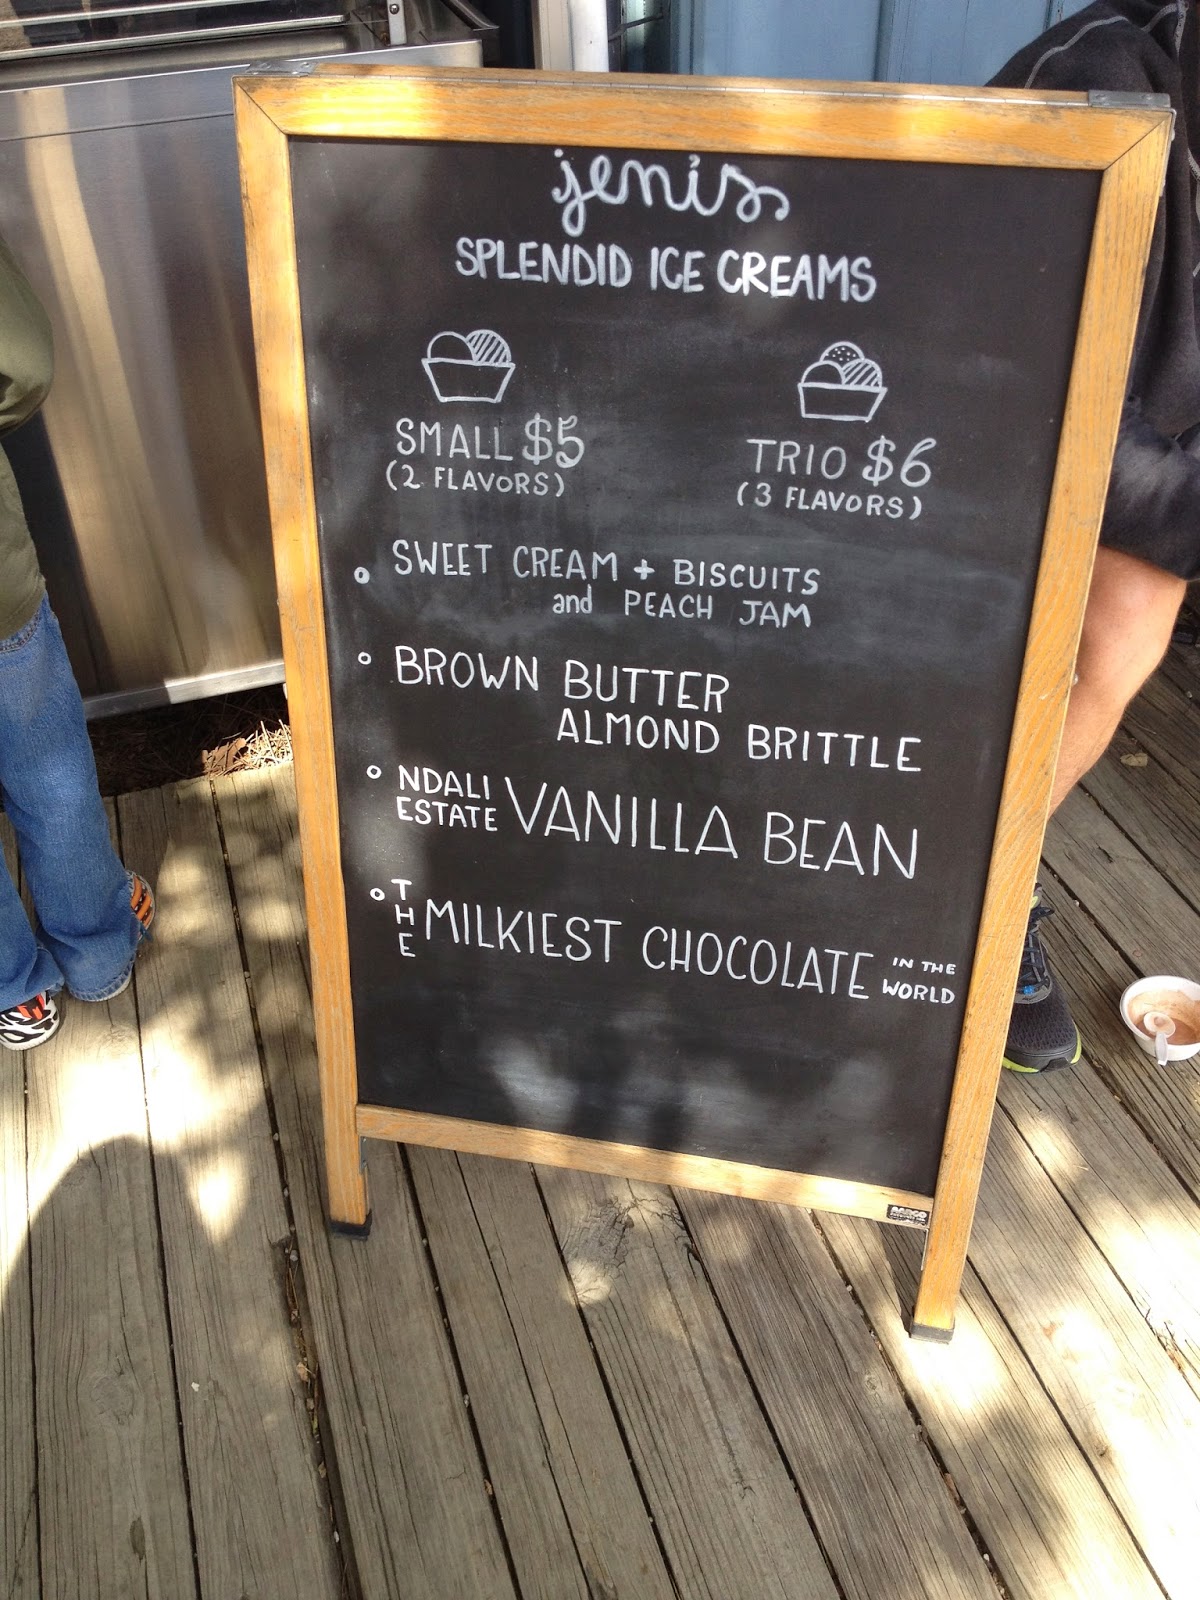 jenis
SPLENDID ICE CREAMS
SMALL $5
(2 FLAVORS)
TRIO $6
(3 FLAVORS)
SWEET CREAM + BISCUITS
and PEACH JAM
BROWN BUTTER
ALMOND BRITTLE
NDALI
ESTATE VANILLA BEAN
THE MILKIEST CHOCOLATE IN THE
WORLD